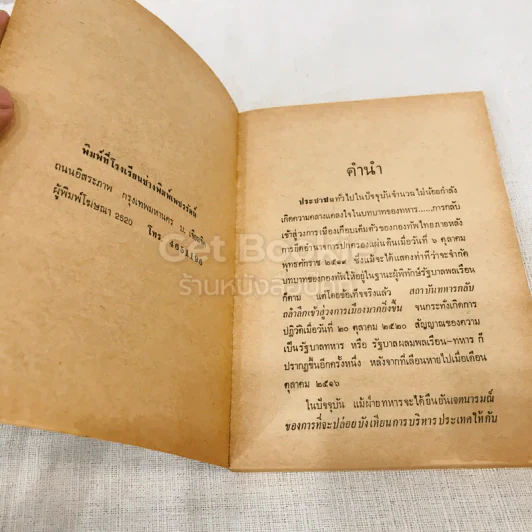 พิมพ์ที่โรงเรียนช่างพิมพ์เพชรรัตน์
ถนนอิสระภาพ กรุงเทพมหานคร
ผู้พิมพ์โฆษณา 2520 โทร 4651156
คำนำ
ประชาชนทั่วไปในปัจจุบันจำนวนไม่น้อยกำลัง
เกิดความคลางแคลงใจในบทบาทของทหาร......การกลับ
เข้าสู่วงการเมืองเกือบเต็มตัวของกองทัพไทยภายหลัง
การยึดอำนาจการปกครองแผ่นดินเมื่อวันที่ ๖ ตุลาคม
พุทธศักราช ๒๕๑๙ ซึ่งแม้จะได้แสดงท่าทีว่าจะจำกัด
บทบาทของกองทัพให้อยู่ในฐานะผู้พิทักษ์รัฐบาลพลเรือน
ก็ตาม แต่โดยข้อเท็จจริงแล้ว สถาบันทหารกลับ
ถลำลึกเข้าสู่วงการเมืองมากยิ่งขึ้น จนกระทั่งเกิดการ
ปฏิวัติเมื่อวันที่ ๒๐ ตุลาคม ๒๕๒๐ สัญญาณของความ
เป็นรัฐบาลทหาร หรือ รัฐบาลผสมพลเรือน-ทหาร ก็
ปรากฏขึ้นอีกครั้งหนึ่ง หลังจากที่เลือนหายไปเมื่อเดือน
ตุลาคม ๒๕๑๖
ในปัจจุบัน แม้ฝ่ายทหารจะได้ยืนยันเจตนารมณ์
ของการที่จะปล่อยบังเหียนการบริหารประเทศให้กับ